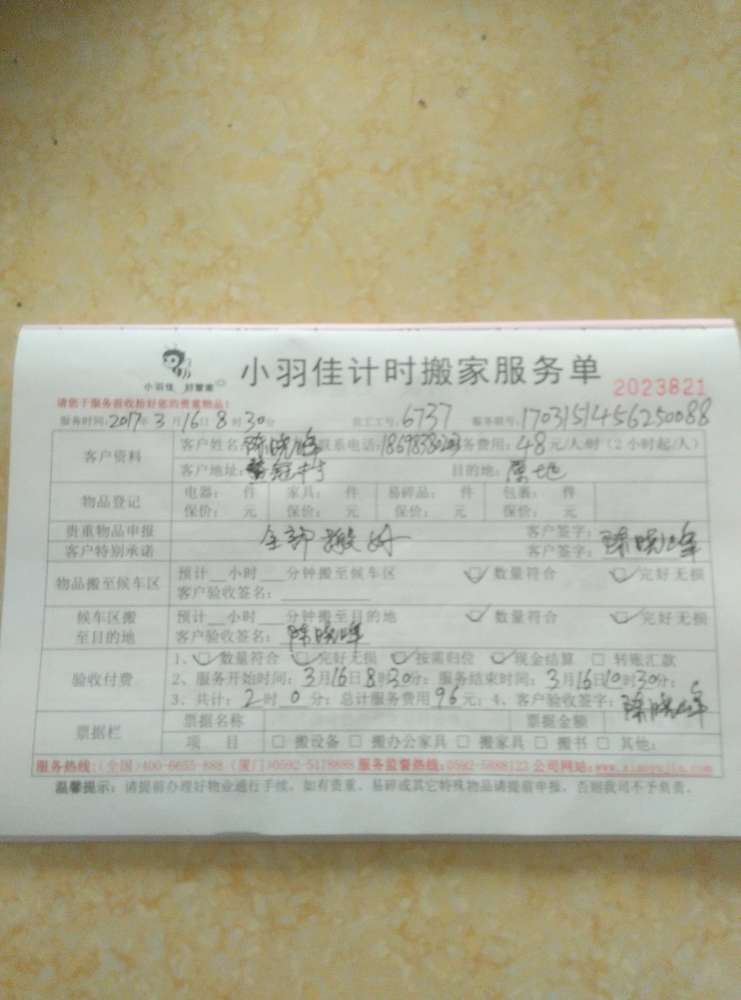 小羽佳 好管家
小羽佳计时搬家服务单
2023821
请您于服务前收拾好您的贵重物品!
服务时间:2017年3月16日8时30分 员工工号:6737 服务联号:1703151456250088
客户资料
客户姓名:陈晓峰 联系电话: 服务费用:48元/人/时(2小时起/人)
客户地址: 目的地:原地
物品登记
电器: 件 家具: 件 易碎品: 件 包裹: 件
保价: 元 保价: 元 保价: 元 保价: 元
贵重物品申报 客户签字:
客户特别承诺 全部搬好 客户签字:陈晓峰
物品搬至候车区
预计__小时___分钟搬至候车区 ☑数量符合 ☑完好无损
客户验收签名:
候车区搬至目的地
预计__小时___分钟搬至目的地 ☑数量符合 ☑完好无损
客户验收签名:陈晓峰
验收付费
1、☑数量符合 ☑完好无损 ☑按需归位 ☑现金结算 □转账汇款
2、服务开始时间:3月16日8时30分;服务结束时间:3月16日10时30分;
3、共计:2时0分;总计服务费用96元;4、客户验收签字:陈晓峰
票据栏
票据名称 票据金额
项 目 □搬设备 □搬办公家具 □搬家具 □搬书 □其他:
服务热线:(全国)400-6655-888 (厦门)0592-5178888 服务监督热线:0592-5888123 公司网站:www.xiaoyujia.com
温馨提示:请提前办理好物业通行手续,如有贵重、易碎或其它特殊物品请提前申报,否则我司不予负责。